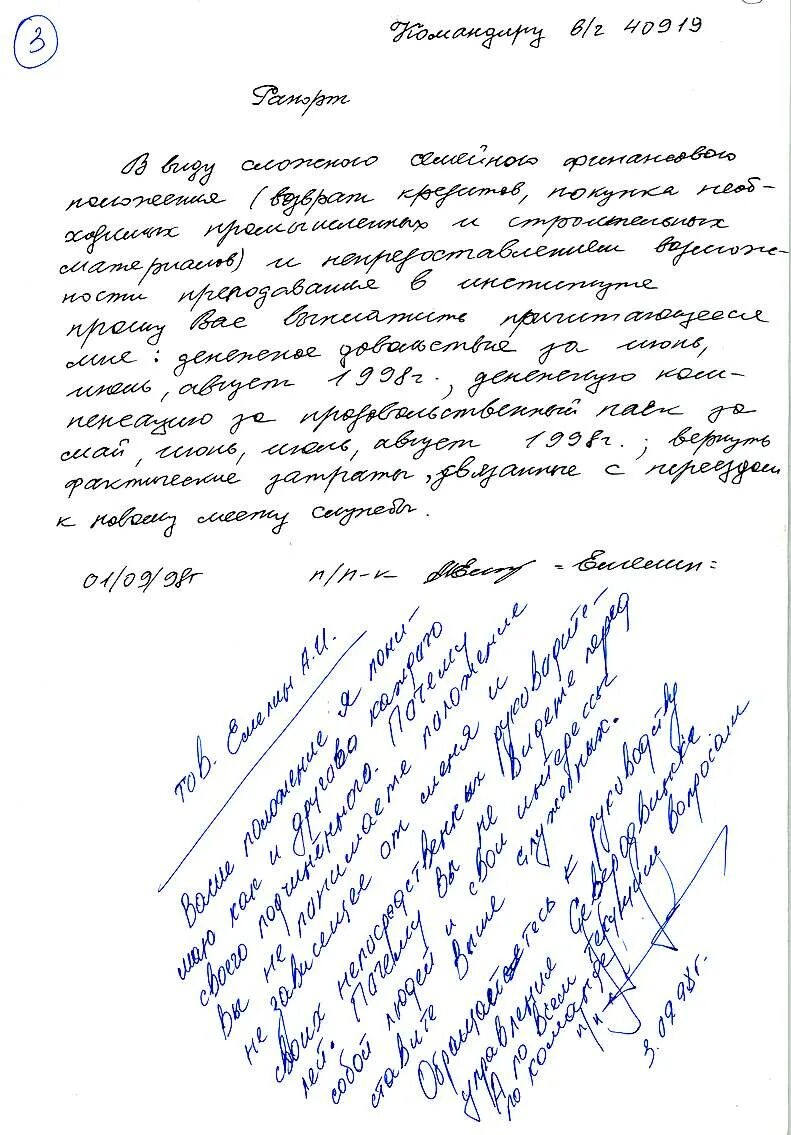 3
Командиру в/г 40919
Рапорт
В виду сложного семейного финансового
положения (возврат кредитов, покупка необ-
ходимых промышленных и строительных
материалов) и непредоставлением возможно-
ности преподавания в институте
прошу Вас выплатить причитающееся
мне: денежное довольствие за июнь,
июль, август 1998г., денежную ком-
пенсацию за продовольственный паёк за
май, июнь, июль, август 1998г.; вернуть
фактические затраты, связанные с переездом
к новому месту службы.
01/09/98г п/п-к =Емелин=
тов. Емелин А.И.
Ваше положение я пони-
маю как и другого каждого
своего подчинённого. Почему
Вы не понимаете положение
не зависящее от меня и
своих непосредственных руководите-
лей. Почему Вы не видете перед
собой людей и свои интересы
ставите выше служебных.
Обращайтесь к руководству
управления Северодвинска
А по всем текущим вопросам
по команде!
п/п-к
3.09.98г.